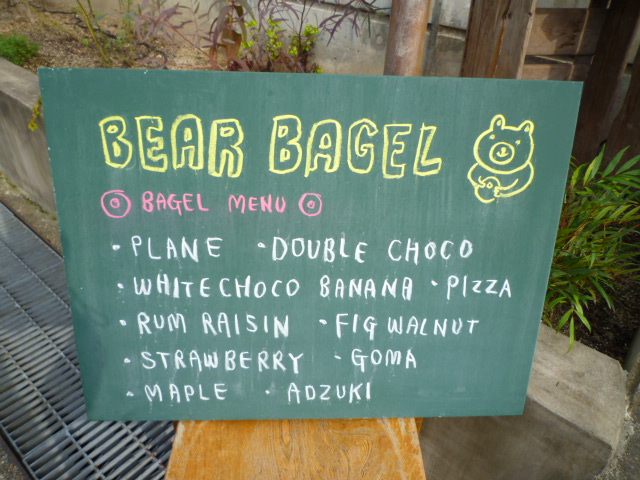 BEAR BAGEL
BAGEL MENU
• PLANE • DOUBLE CHOCO
• WHITECHOCO BANANA • PIZZA
• RUM RAISIN • FIG WALNUT
• STRAWBERRY • GOMA
• MAPLE • ADZUKI